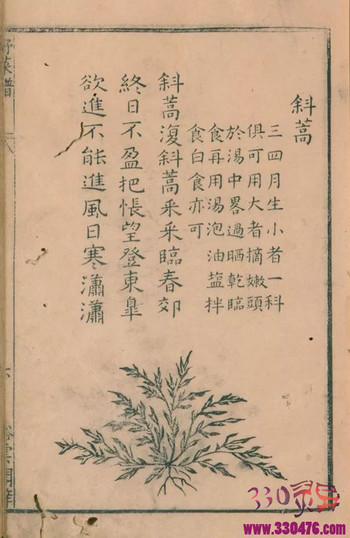 斜蒿
三四月生小者一科
俱可用大者摘嫩頭
於湯中畧過晒乾臨
食再用湯泡油塩拌
食白食亦可
斜蒿復斜蒿采采臨春郊
終日不盈把悵望登東臯
欲進不能進風日寒瀟瀟
野菜譜
330
www.330476.com